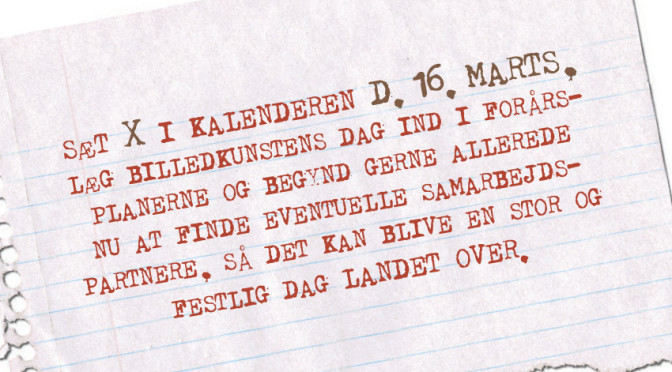 SÆT X I KALENDEREN D. 16. MARTS.
LÆG BILLEDKUNSTENS DAG IND I FORÅRS-
PLANERNE OG BEGYND GERNE ALLEREDE
NU AT FINDE EVENTUELLE SAMARBEJDS-
PARTNERE, SÅ DET KAN BLIVE EN STOR OG
FESTLIG DAG LANDET OVER.